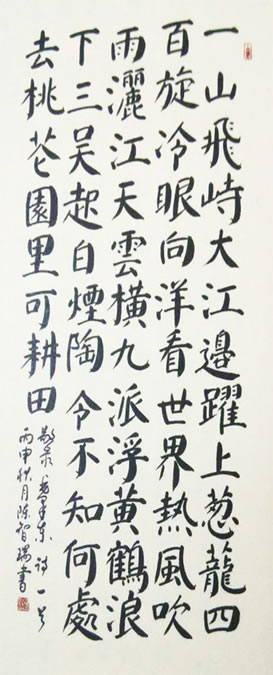 一山飛峙大江邊躍上葱蘢四
百旋冷眼向洋看世界熱風吹
雨灑江天雲橫九派浮黃鶴浪
下三吴起白煙陶令不知何處
去桃花園里可耕田
敬录毛泽东诗一首
丙申秋月陈智瑞書